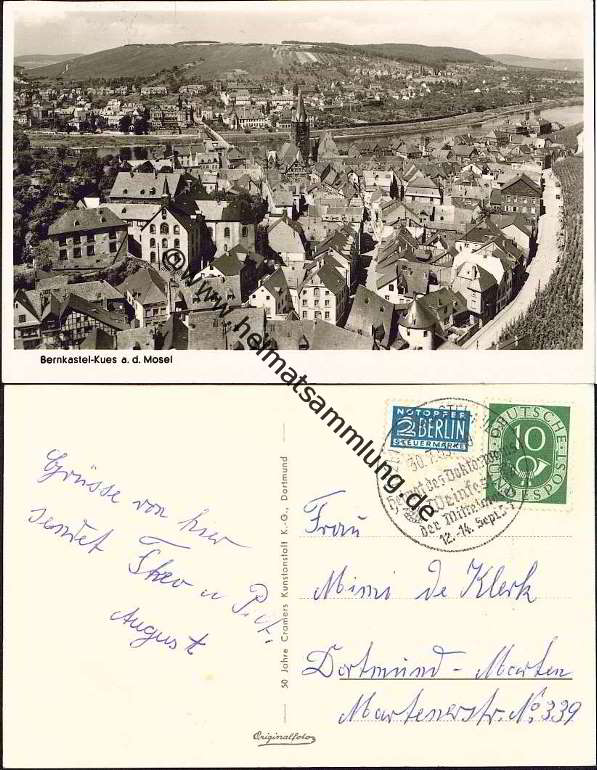 Bernkastel-Kues a. d. Mosel
© www.heimatsammlung.de
NOTOPFER
2 BERLIN
STEUERMARKE
DEUTSCHE
10
BUNDESPOST
Weinfest
der Mittelmosel
12.-14. Sept.
Grüsse von hier
sendet Theo u
August
50 Jahre Cramers Kunstanstalt K.-G., Dortmund
Originalfoto
Frau
Mimi de Klerk
Dortmund - Marten
Martenerstr. No 339